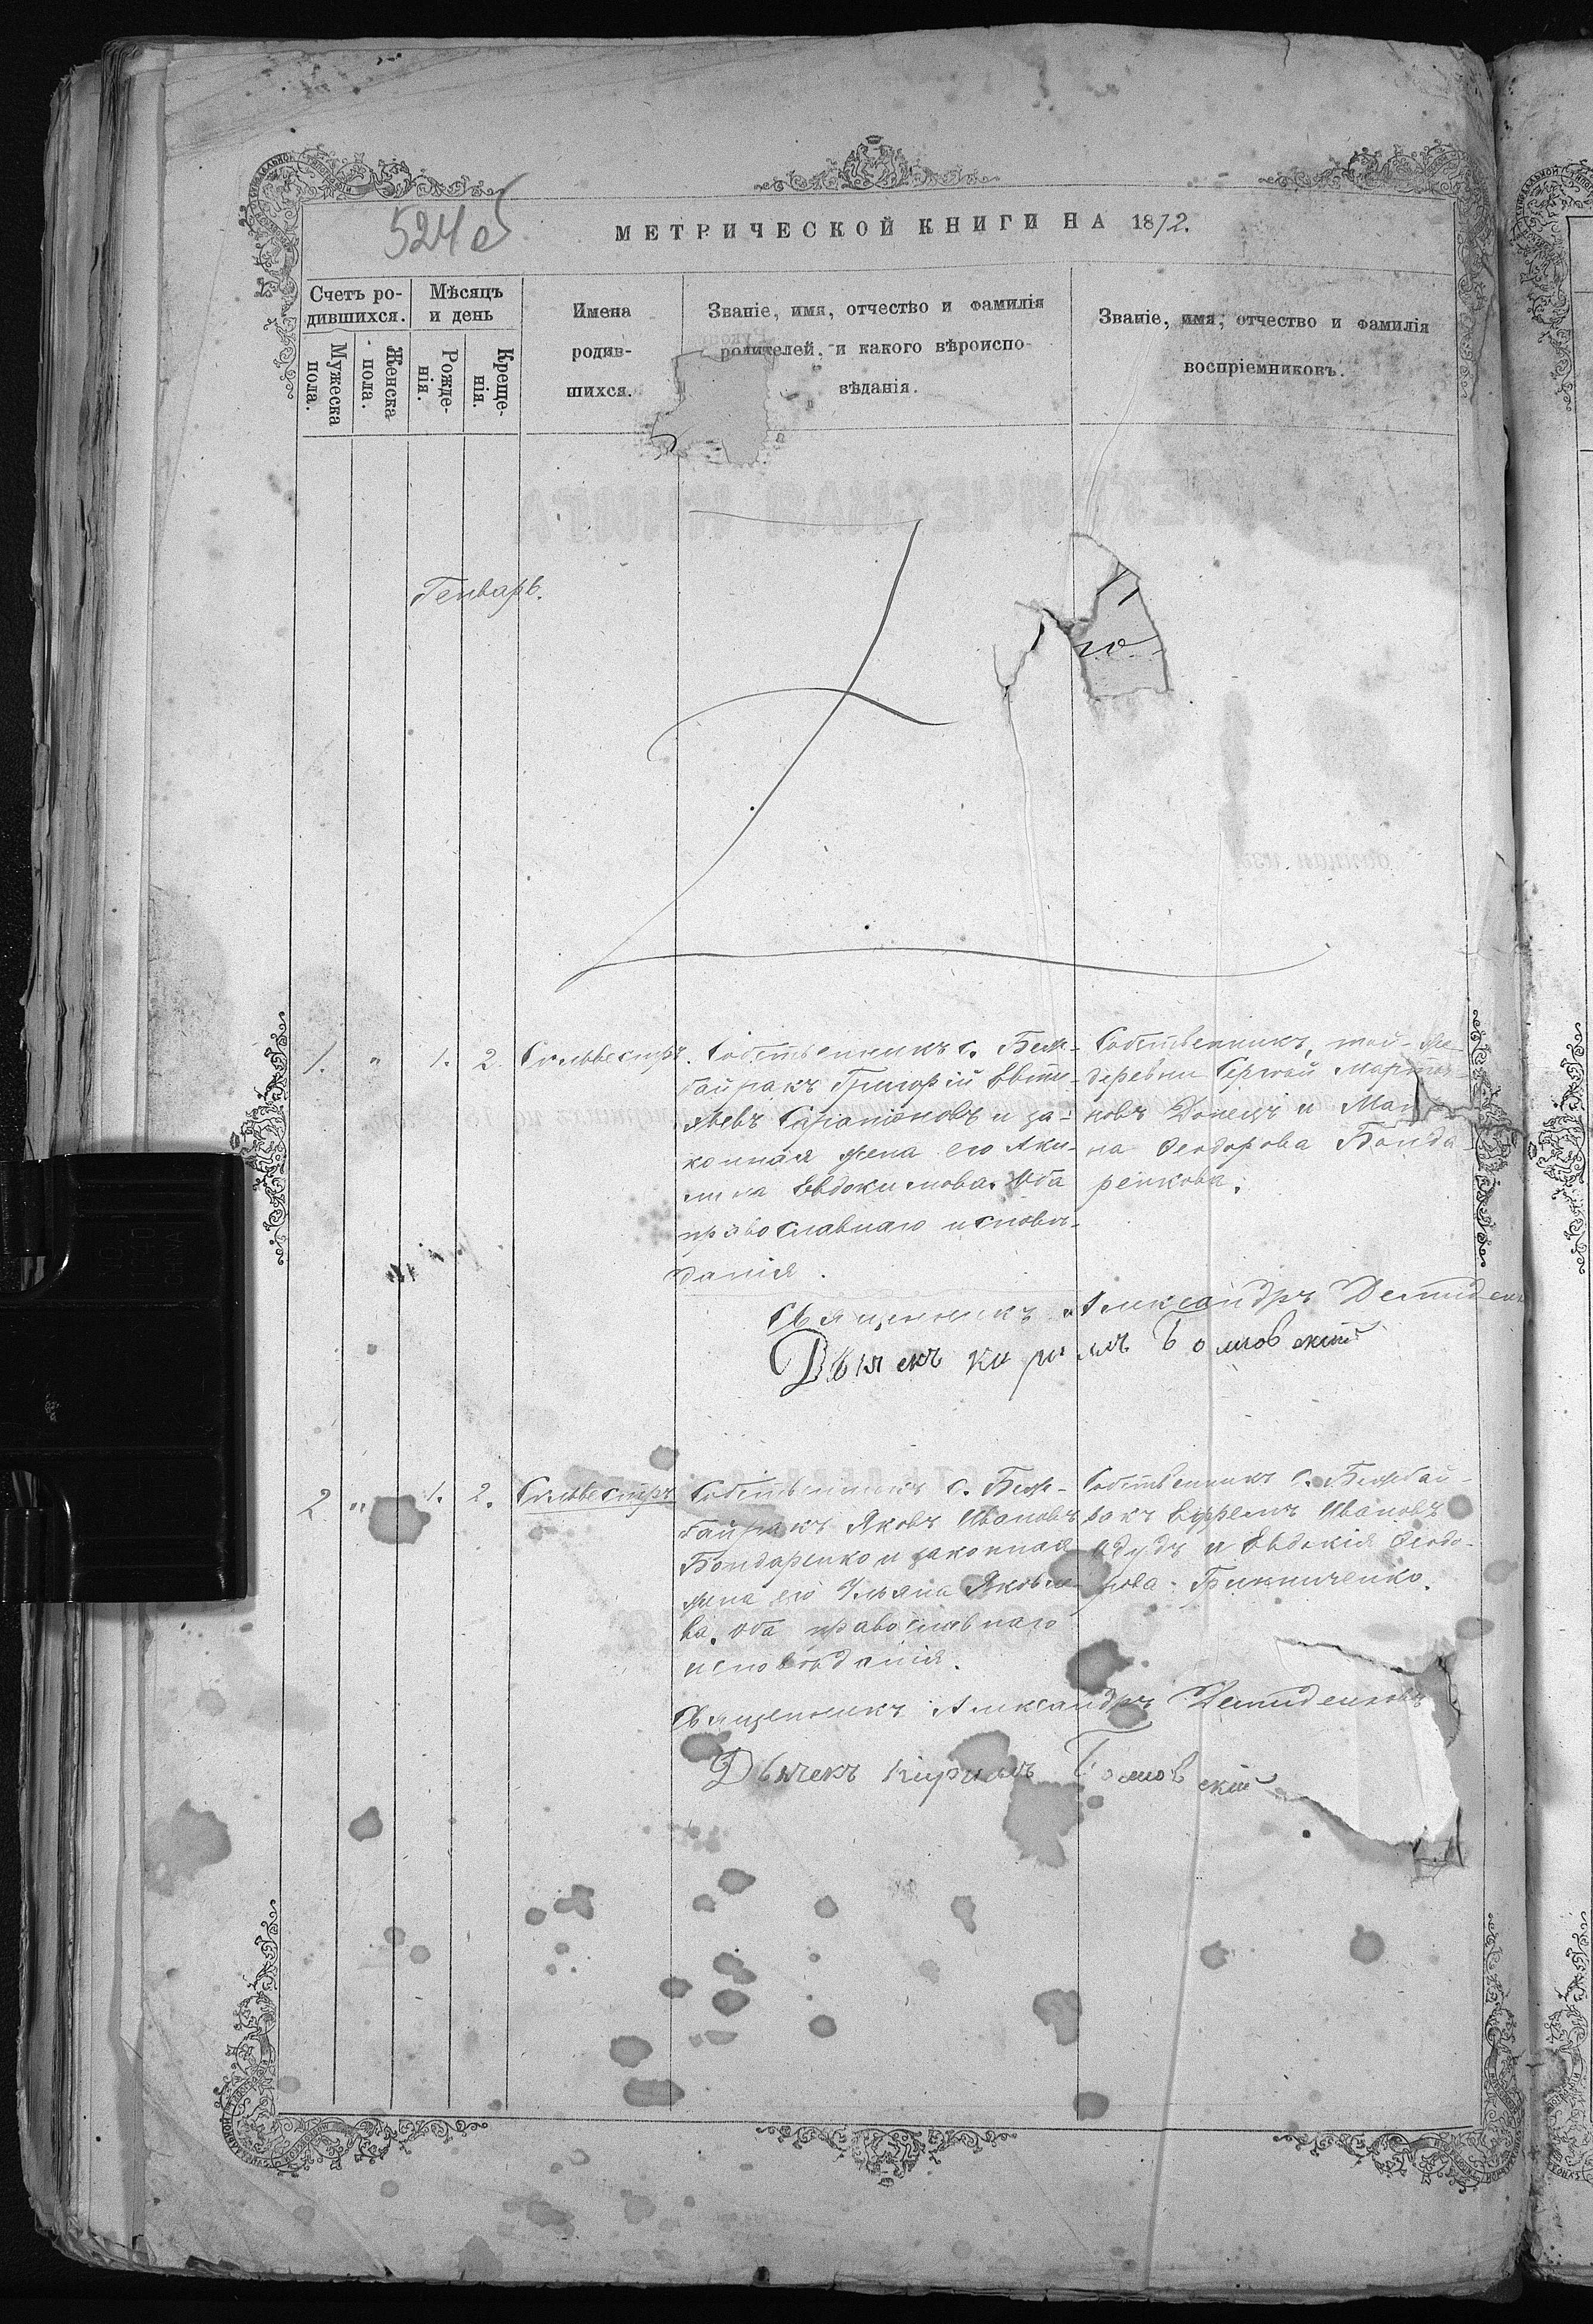 524 об
МЕТРИЧЕСКОЙ КНИГИ НА 1872.
Счетъ ро-
дившихся.
Мужеска
пола.
Женска
пола.
Мѣсяцъ
и день
Рожде-
нія.
Креще-
нія.
Имена
родив-
шихся.
Званіе, имя, отчество и фамилія
родителей, и какого вѣроиспо-
вѣданія.
Званіе, имя, отчество и фамилія
воспріемниковъ.
Генварь.
1. " 1. 2. Сильвестръ.
Собственникъ с. Беж-
байракъ Григорій Евти-
ѣевъ и за-
конная жена его Аки-
лина Евдокимова. Оба
православнаго исповѣ-
данія.
Собственникъ, той-же
деревни Сергѣй Марты-
новъ Донецъ и
на Ѳеодорова Бонда
ренкова.
Священникъ Александръ Демиден
Дьячекъ Кирилъ
2 " 1. 2. Сильвестръ
Собственникъ с. Беж-
байракъ Яковъ Ивановъ
Бондаренко и законная
жена его Ульяна Яковле-
ва. Оба православнаго
исповѣданія.
Собственникъ с. Бежбай-
ракъ Ефремъ Ивановъ
и Евдокія Ѳеодо-
рова
Священникъ Александръ Демиденковъ
Дьячекъ Кирилъ